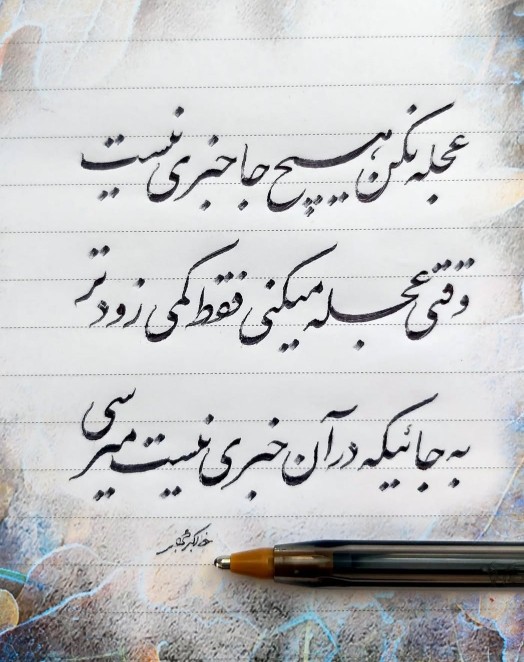 عجله نکن هیچ جا خبری نیست
وقتی عجله میکنی فقط کمی زودتر
به جائیکه در آن خبری نیست میرسی